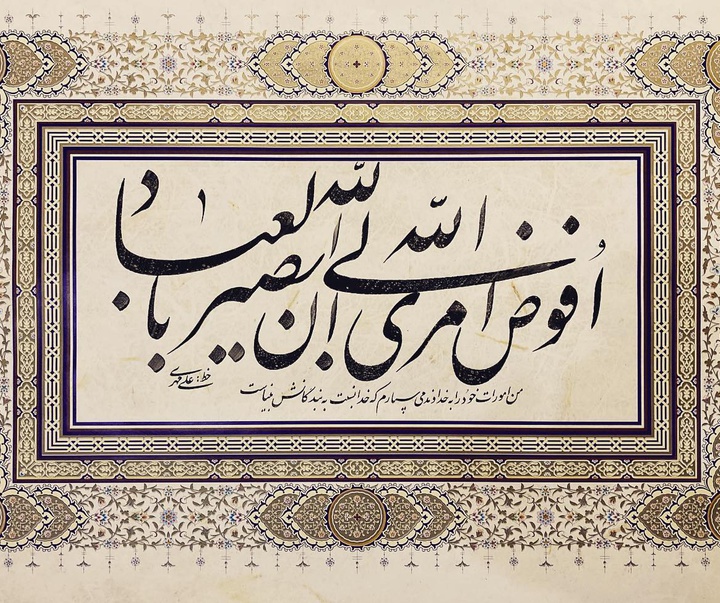 اُفوض امری الی الله ان الله بصیر بالعباد
من امورات خود را به خداوند می سپارم که خدا نسبت به بندگانش بیناست
خط: علی مهدی